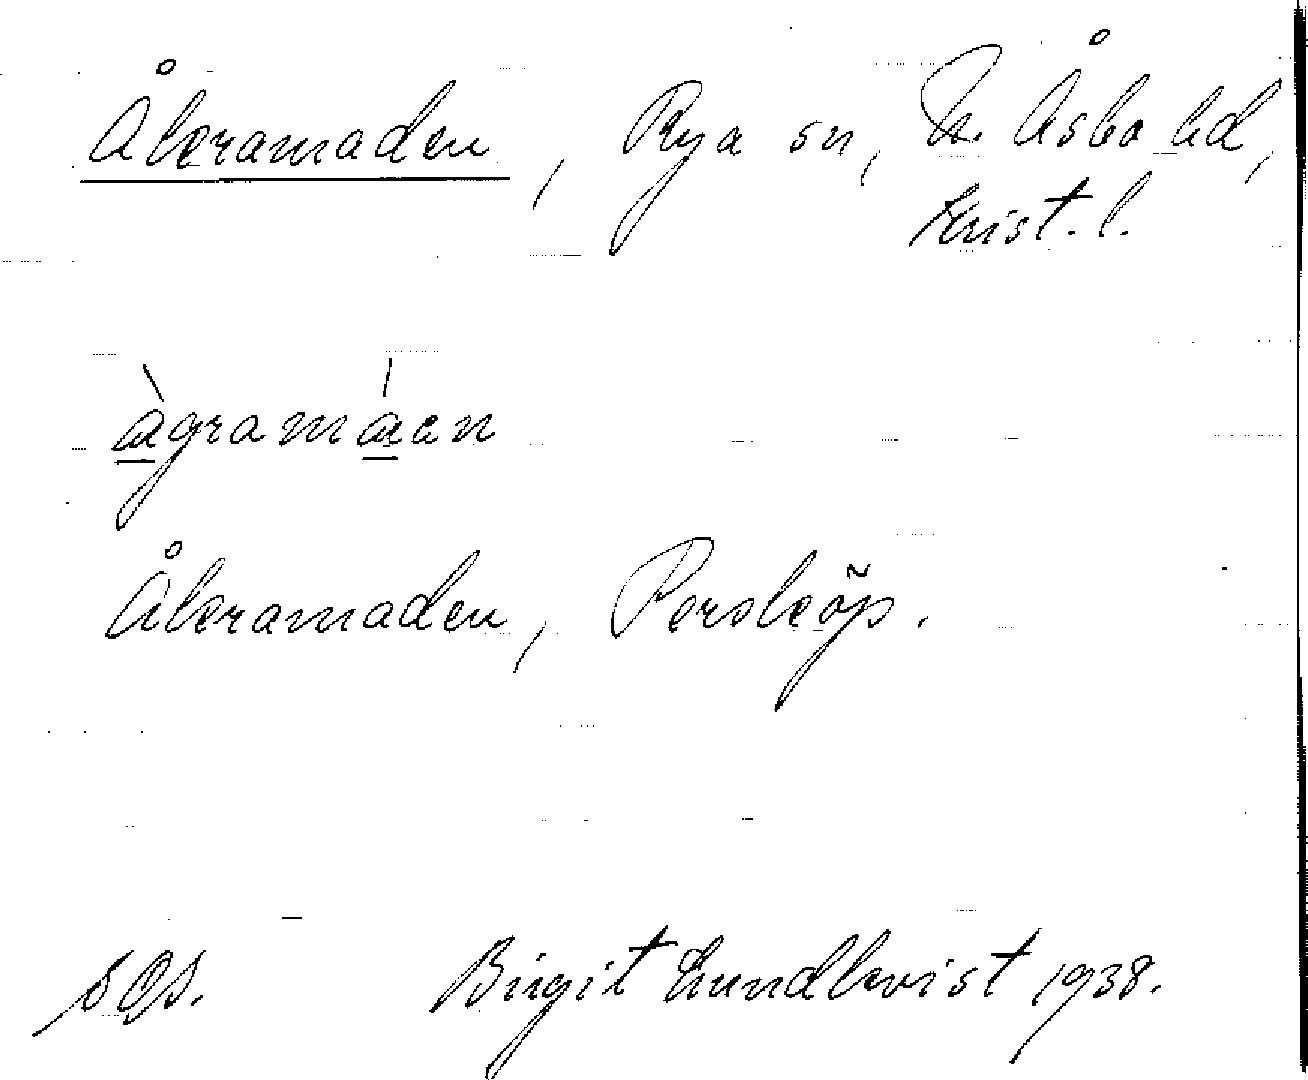 Åkramaden, Rya sn, N. Åsbo hd,
Krist. l.
àgramáen
Åkramaden, Perslöp.
SOS. Birgit Lundkvist 1938.